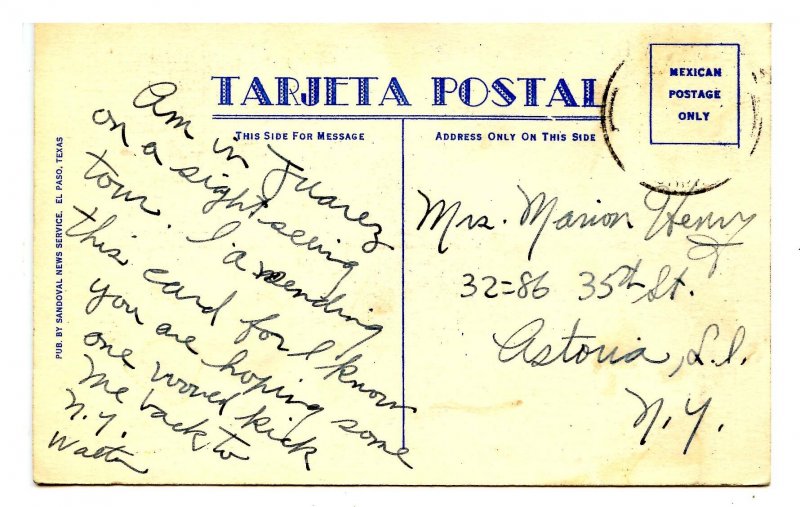 TARJETA POSTAL
THIS SIDE FOR MESSAGE
ADDRESS ONLY ON THIS SIDE
MEXICAN
POSTAGE
ONLY
PUB. BY SANDOVAL NEWS SERVICE. EL PASO, TEXAS
Am in Juarez
on a sight seeing
tour. I a sending
this card for I know
you are hoping some
one would kick
me back to
N.Y.
Walter
Mrs. Marion Henry
32=86 35th St.
Astoria, L.I.
N.Y.